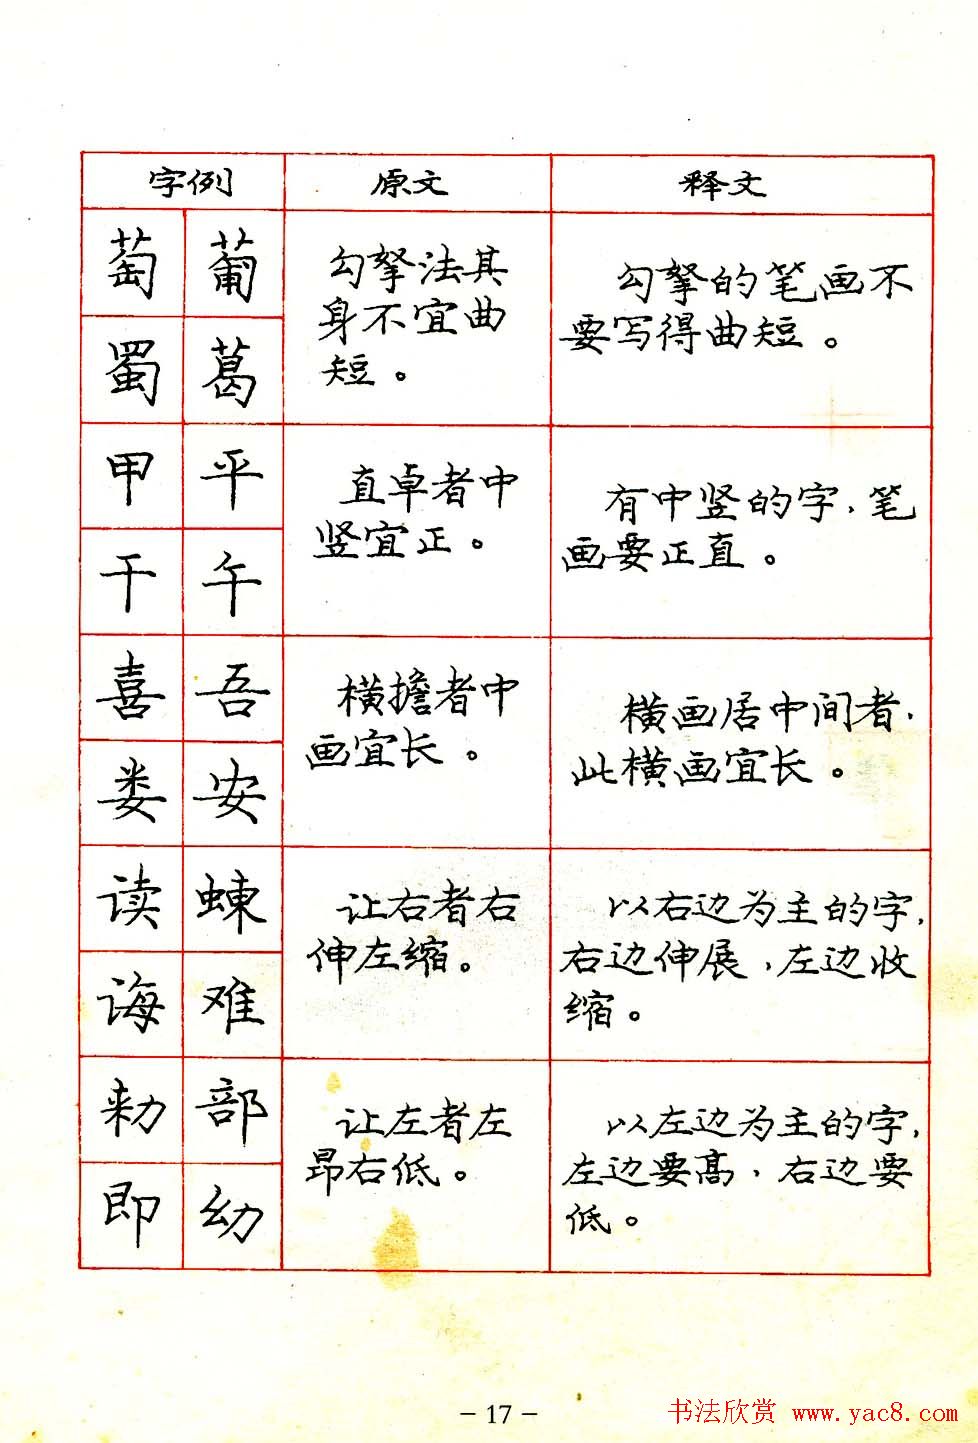 字例 原文 释文
萄 葡
蜀 葛
勾拏法其
身不宜曲
短。
勾拏的笔画不
要写得曲短。
甲 平
干 午
直卓者中
竖宜正。
有中竖的字,笔
画要正直。
喜 吾
娄 安
横担者中
画宜长。
横画居中间者,
此横画宜长。
读 蝀
诲 难
让右者右
伸左缩。
以右边为主的字,
右边伸展,左边收
缩。
勑 部
即 幼
让左者左
昂右低。
以左边为主的字,
左边要高,右边要
低。
- 17 -
书法欣赏 www.yac8.com